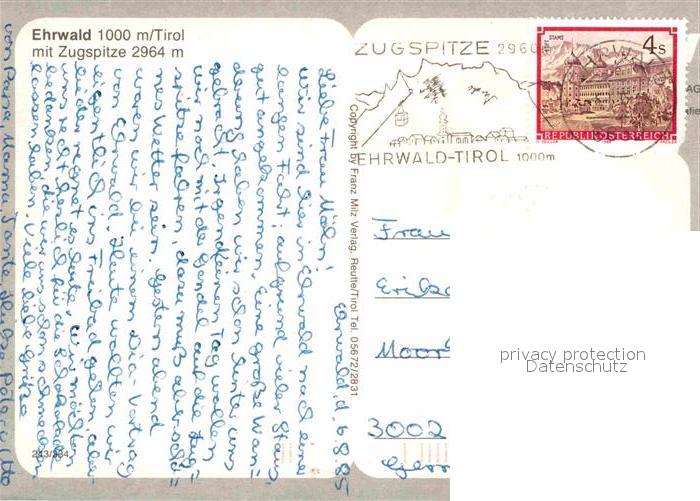 Ehrwald 1000 m/Tirol
mit Zugspitze 2964 m
Ehrwald, d. 6.8.85
Liebe Frau Möhn!
Wir sind hier in Ehrwald nach einer
langen Fahrt, aufgrund vieler Staus,
gut angekommen. Eine große Wan=
derung haben wir schon hinter uns
gebracht. Irgendeinen Tag wollen
wir noch mit der Gondel auf die Zug=
spitze fahren, dazu muß aber schö=
nes Wetter sein. Gestern abend
waren wir bei einem Dia-Vortrag
von Ehrwald. Heute wollten wir
eigentlich ins Freibad gehen, aber
leider regnet es heute. Wir möchten
uns recht herzlich für die Schokolade
bedanken, die wir uns schon schmecken
lassen haben. Viele liebe Grüße
von Petra, Mama, Tante
243/334
Copyright by Franz Milz Verlag, Reutte/Tirol Tel. 05672/2831
ZUGSPITZE 2960m
EHRWALD-TIROL 1000m
STIFT STAMS
4 S
REPUBLIK ÖSTERREICH
Frau
Moor
3002
privacy protection
Datenschutz